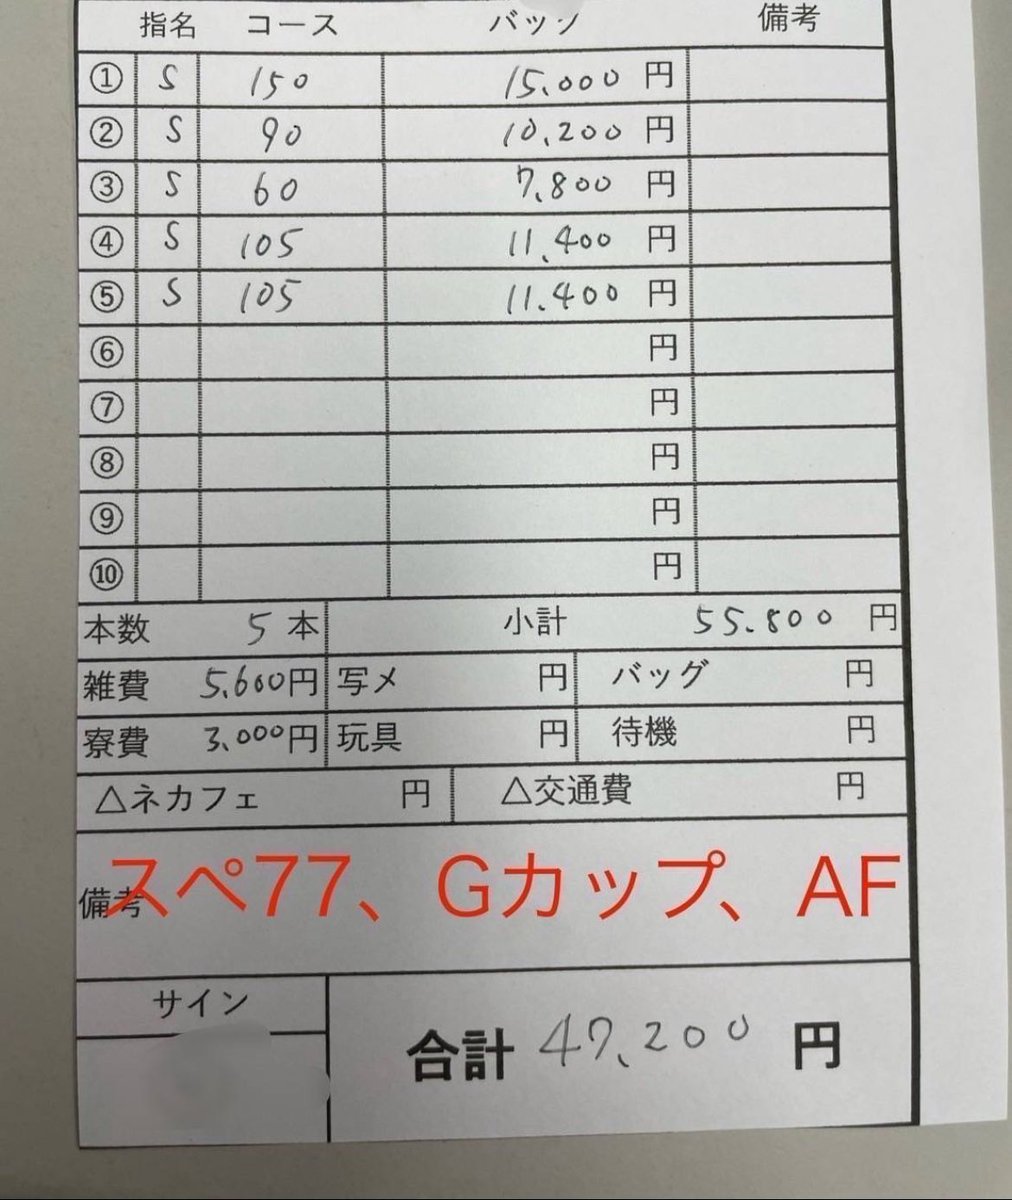 指名 コース バック 備考
① S 150 15.000 円
② S 90 10.200 円
③ S 60 7.800 円
④ S 105 11.400 円
⑤ S 105 11.400 円
⑥ 円
⑦ 円
⑧ 円
⑨ 円
⑩ 円
本数 5 本 小計 55.800 円
雑費 5.600円 写メ 円 バッグ 円
寮費 3.000円 玩具 円 待機 円
△ネカフェ 円 △交通費 円
備考 スペ77、Gカップ、AF
サイン
合計 47.200 円